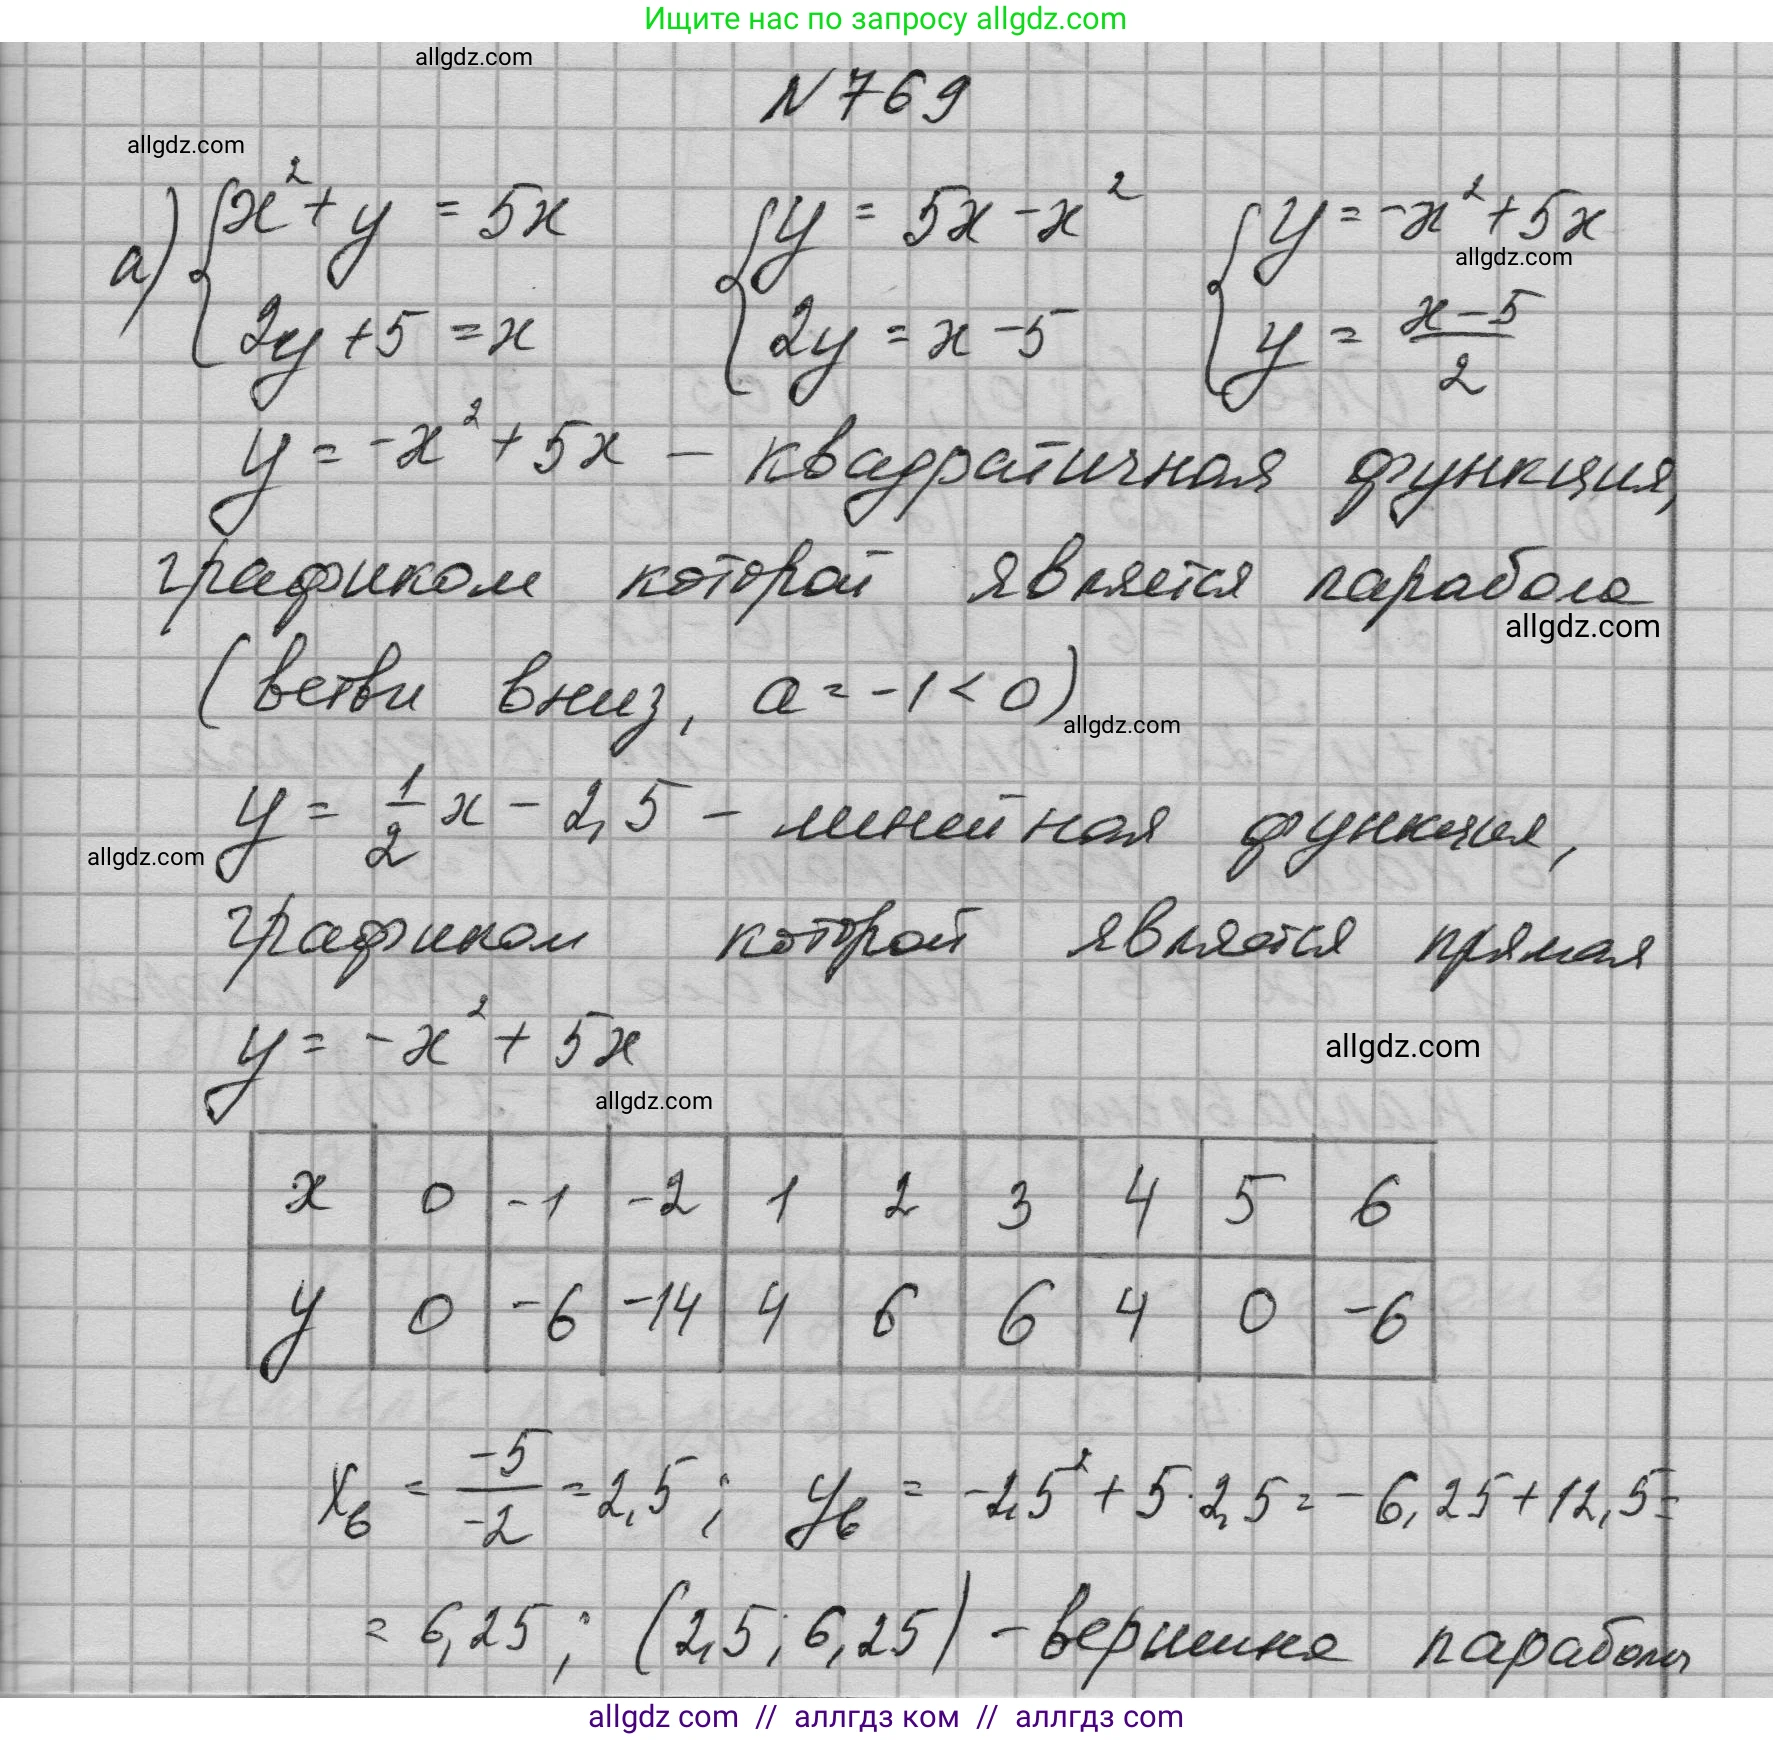 Ищите нас по запросу allgdz.com
allgdz.com
N 769
allgdz.com
а) { x² + y = 5x { y = 5x - x² { y = -x² + 5x
allgdz.com
2y + 5 = x 2y = x - 5 y = (x - 5)/2
y = -x² + 5x - квадратичная функция,
графиком которой является парабола
allgdz.com
(ветви вниз, a = -1 < 0)
allgdz.com
y = 1/2 x - 2,5 - линейная функция,
allgdz.com
графиком которой является прямая
y = -x² + 5x
allgdz.com
allgdz.com
x 0 -1 -2 1 2 3 4 5 6
y 0 -6 -14 4 6 6 4 0 -6
xв = -5/-2 = 2,5; yв = -2,5² + 5·2,5 = -6,25 + 12,5 =
= 6,25; (2,5; 6,25) - вершина параболы
allgdz com // аллгдз ком // аллгдз com